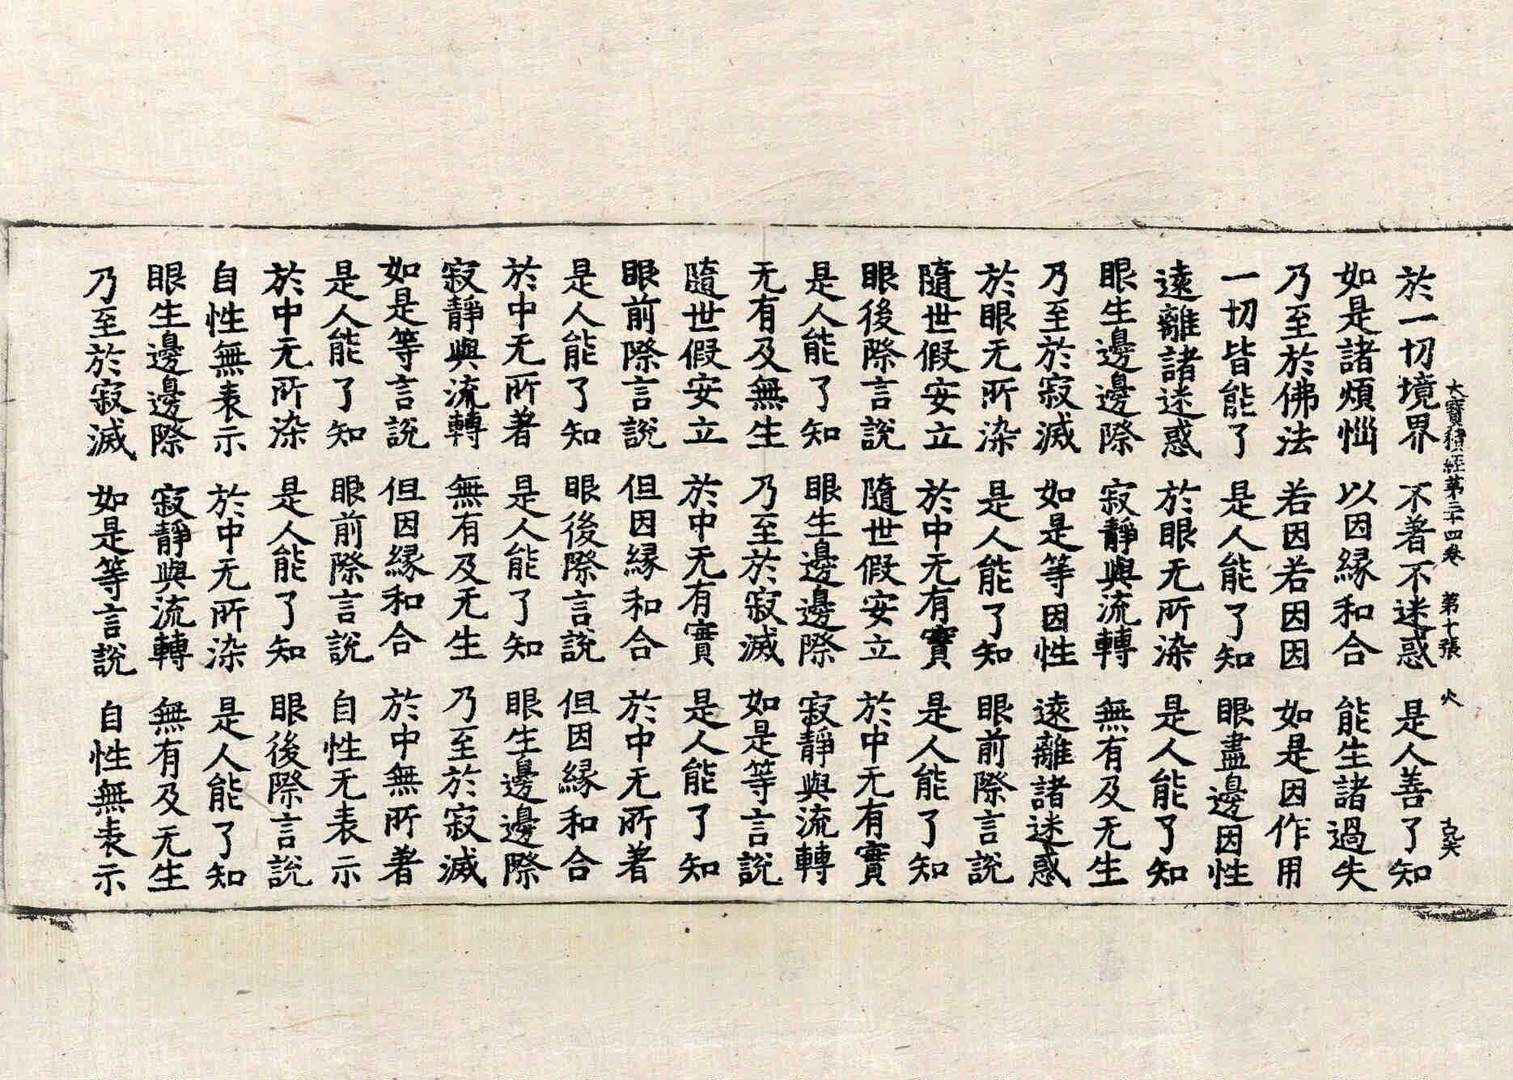 大寶積經第三十四卷 第十張 火
於一切境界 不著不迷惑 是人善了知
如是諸煩惱 以因縁和合 能生諸過失
乃至於佛法 若因若因因 如是因作用
一切皆能了 是人能了知 眼盡邊因性
遠離諸迷惑 於眼无所染 是人能了知
眼生邊邊際 寂靜與流轉 無有及无生
乃至於寂滅 如是等因性 遠離諸迷惑
於眼无所染 是人能了知 眼前際言說
隨世假安立 於中无有實 是人能了知
眼後際言說 隨世假安立 於中无有實
是人能了知 眼生邊邊際 寂靜與流轉
无有及無生 乃至於寂滅 如是等言說
隨世假安立 於中无有實 是人能了知
眼前際言說 但因縁和合 於中无所著
是人能了知 眼後際言說 但因縁和合
於中无所著 是人能了知 眼生邊邊際
寂靜與流轉 無有及无生 乃至於寂滅
如是等言說 但因縁和合 於中無所著
是人能了知 眼前際言說 自性无表示
於中无所染 是人能了知 眼後際言說
自性無表示 於中无所染 是人能了知
眼生邊邊際 寂靜與流轉 無有及无生
乃至於寂滅 如是等言說 自性無表示